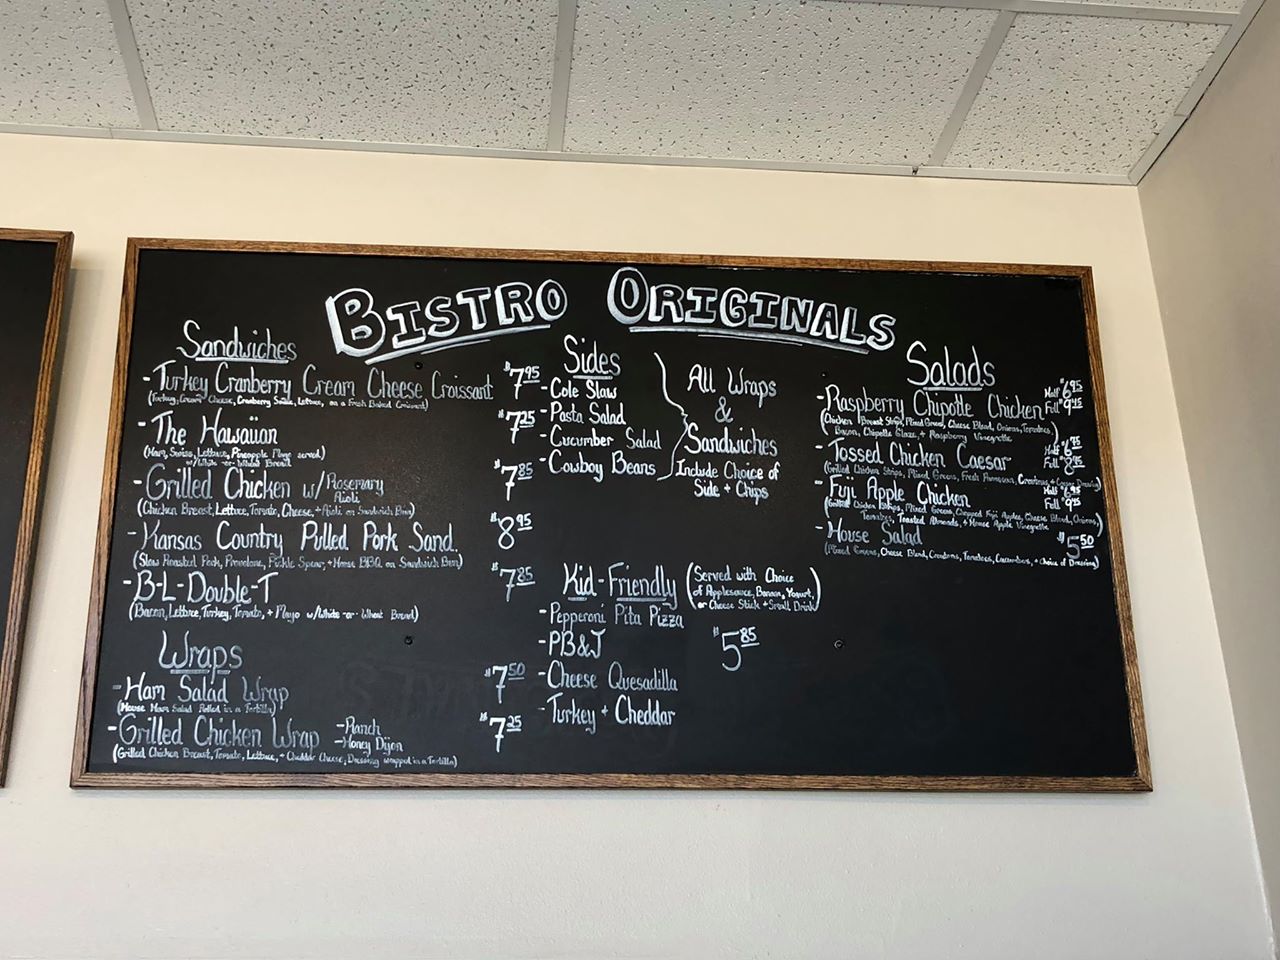 BISTRO ORIGINALS
Sandwiches
-Turkey Cranberry Cream Cheese Croissant $7.95
(Turkey, Cream Cheese, Cranberry Sauce, Lettuce, on a Fresh Baked Croissant)
-The Hawaiian $7.25
(Ham, Swiss, Lettuce, Pineapple Mayo served)
w/White -or- Wheat Bread
-Grilled Chicken w/Rosemary $7.85
Aioli
(Chicken Breast, Lettuce, Tomato, Cheese, + Aioli on Sandwich Bun)
-Kansas Country Pulled Pork Sand. $8.95
(Slow Roasted Pork, Provolone, Pickle Spear, + House BBQ on Sandwich Bun)
-B-L-Double-T $7.85
(Bacon, Lettuce, Turkey, Tomato, + Mayo w/White -or- Wheat Bread)
Wraps
-Ham Salad Wrap $7.50
(House Ham Salad Rolled in a Tortilla)
-Grilled Chicken Wrap $7.25
-Ranch
-Honey Dijon
(Grilled Chicken Breast, Tomato, Lettuce, + Cheddar Cheese, Dressing wrapped in a Tortilla)
Sides
-Cole Slaw
-Pasta Salad
-Cucumber Salad
-Cowboy Beans
All Wraps
&
Sandwiches
Include Choice of
Side + Chips
Kid-Friendly
(Served with Choice
of Applesauce, Banana, Yogurt,
or Cheese Stick + Small Drink)
-Pepperoni Pita Pizza
-PB&J
-Cheese Quesadilla
-Turkey + Cheddar
$5.85
Salads
-Raspberry Chipotle Chicken Half $6.95
Full $9.45
(Chicken Breast Strips, Mixed Greens, Cheese Blend, Onions, Tomatoes,
Bacon, Chipotle Glaze, + Raspberry Vinegrette)
-Tossed Chicken Caesar Half $6.75
Full $8.45
(Grilled Chicken Strips, Mixed Greens, Fresh Parmesan, Croutons, + Caesar Dressing)
-Fuji Apple Chicken Half $6.95
Full $9.45
(Grilled Chicken Strips, Mixed Greens, Chopped Fuji Apples, Cheese Blend, Onions,
Tomatoes, Toasted Almonds, + House Apple Vinegrette)
-House Salad $5.50
(Mixed Greens, Cheese Blend, Croutons, Tomatoes, Cucumbers, + Choice of Dressing)